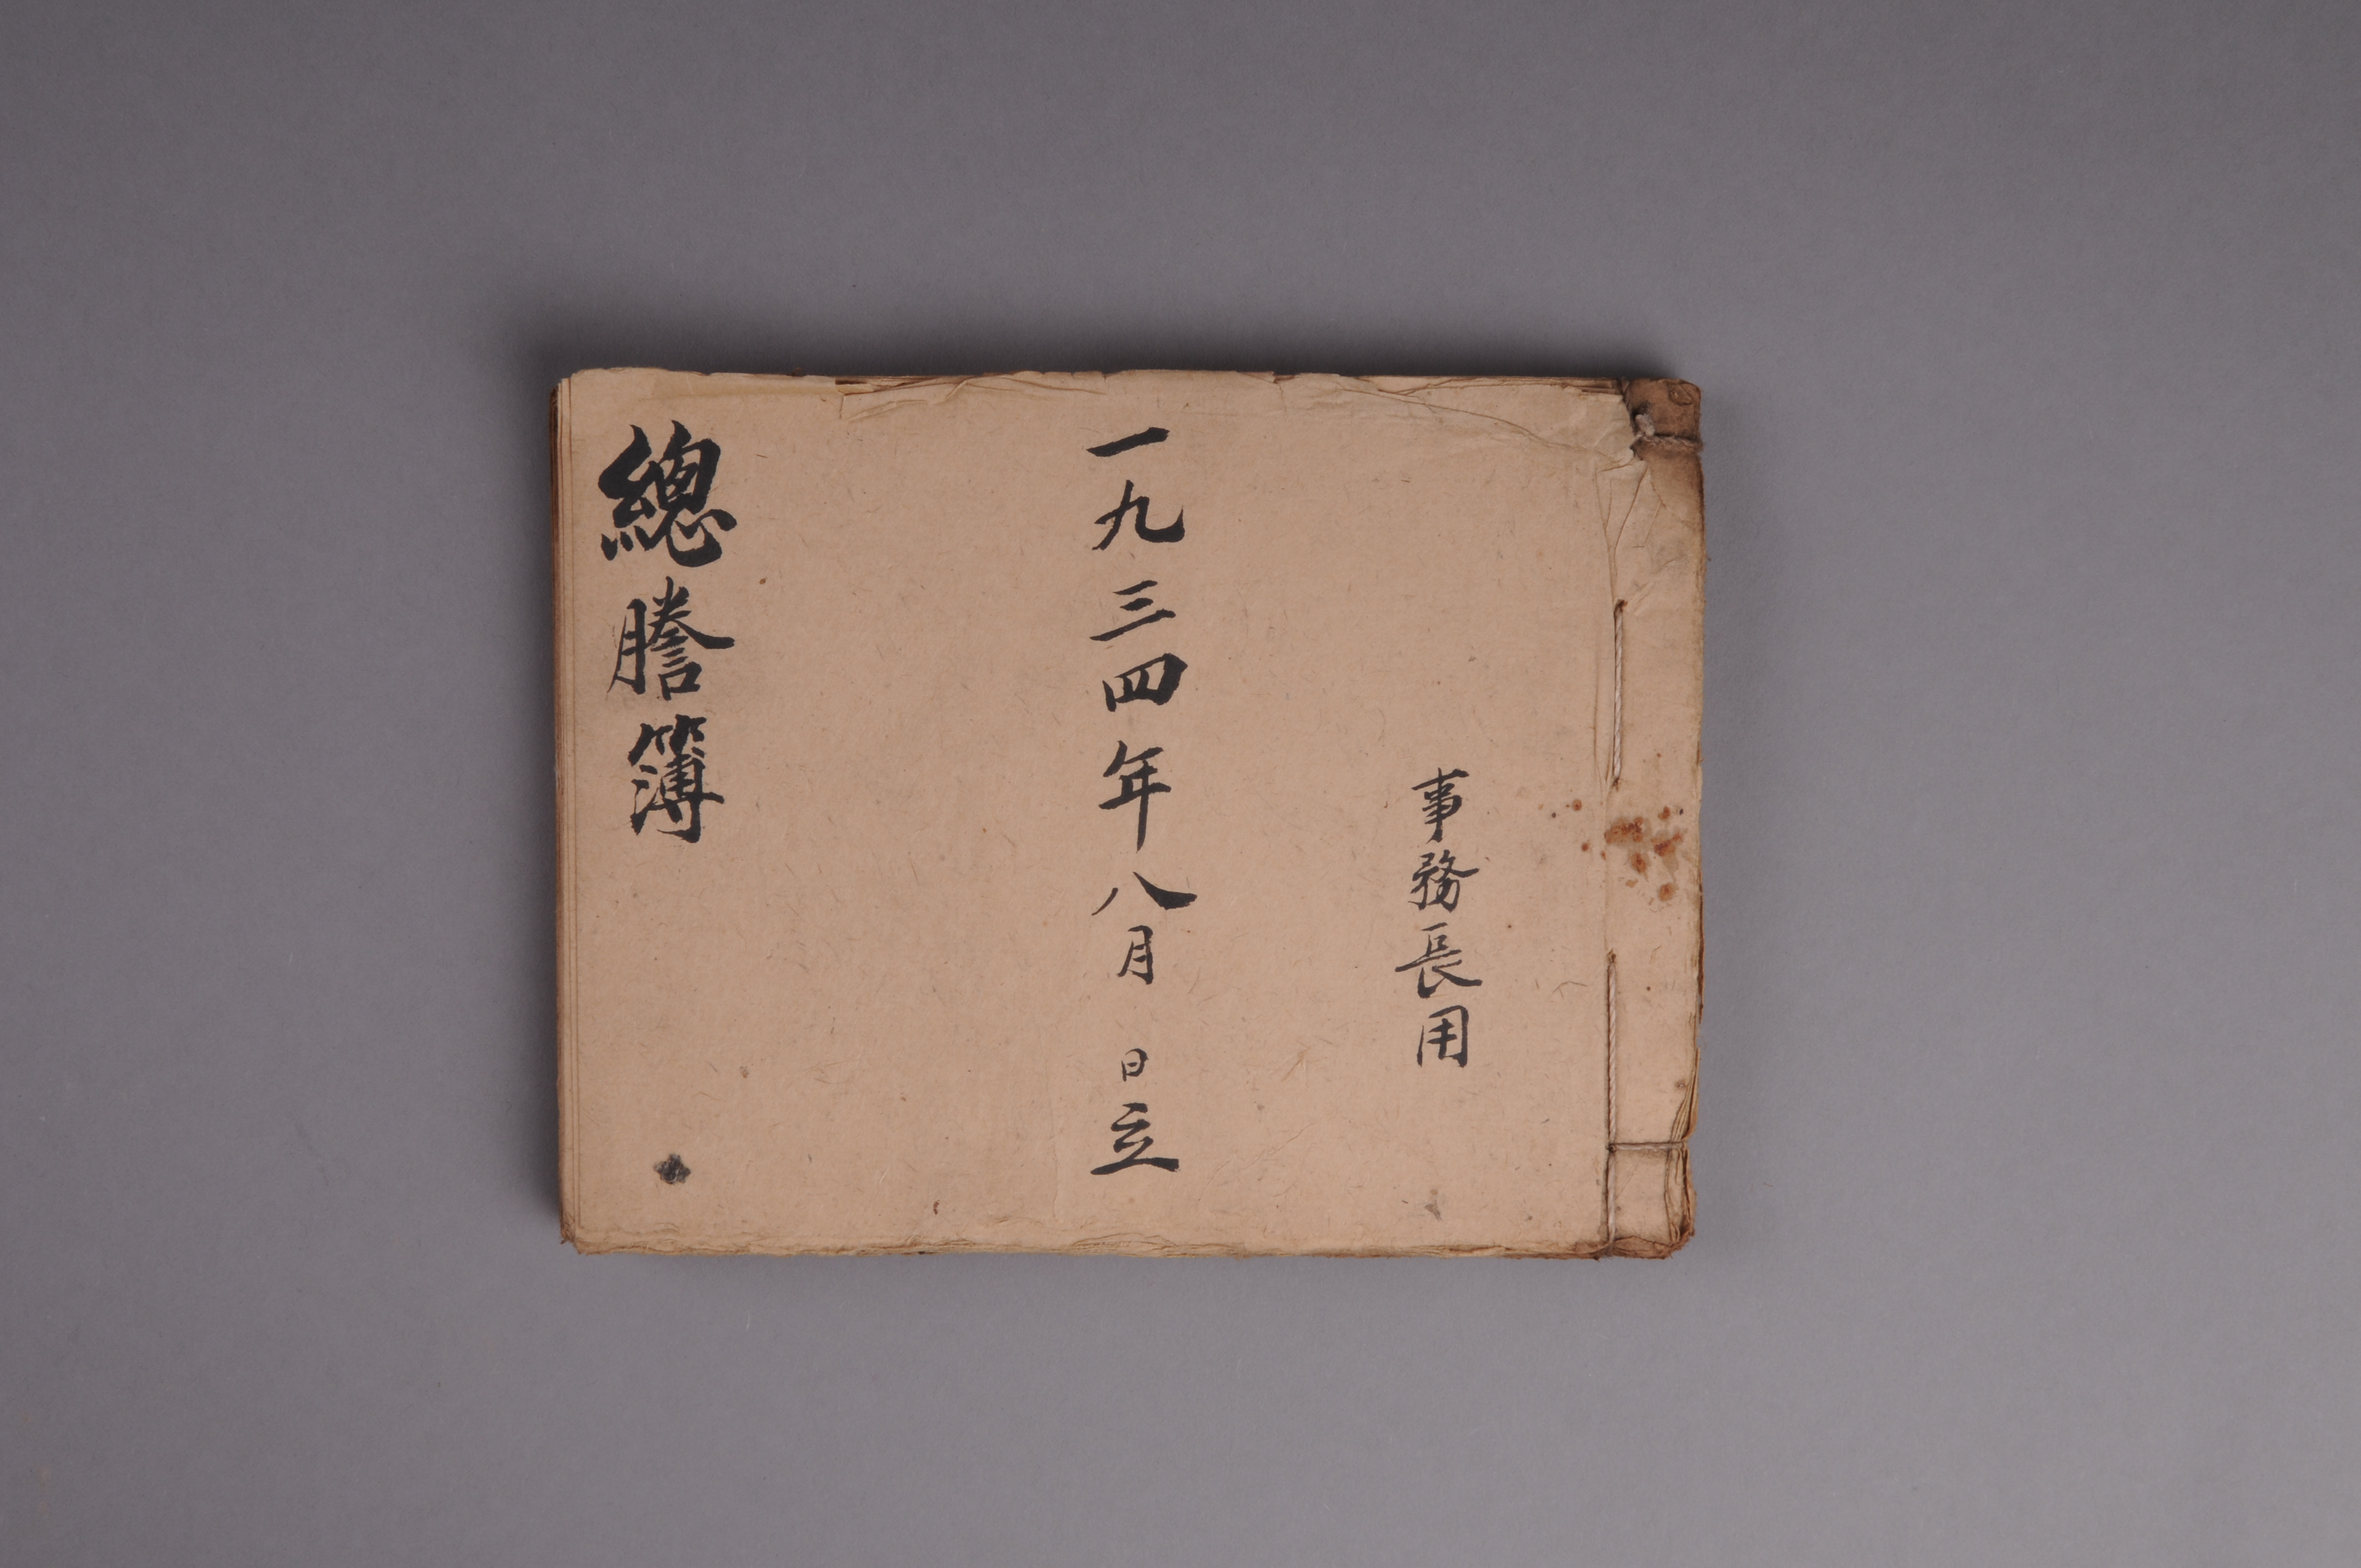 事務長用
一九三四年八月 日立
總謄簿